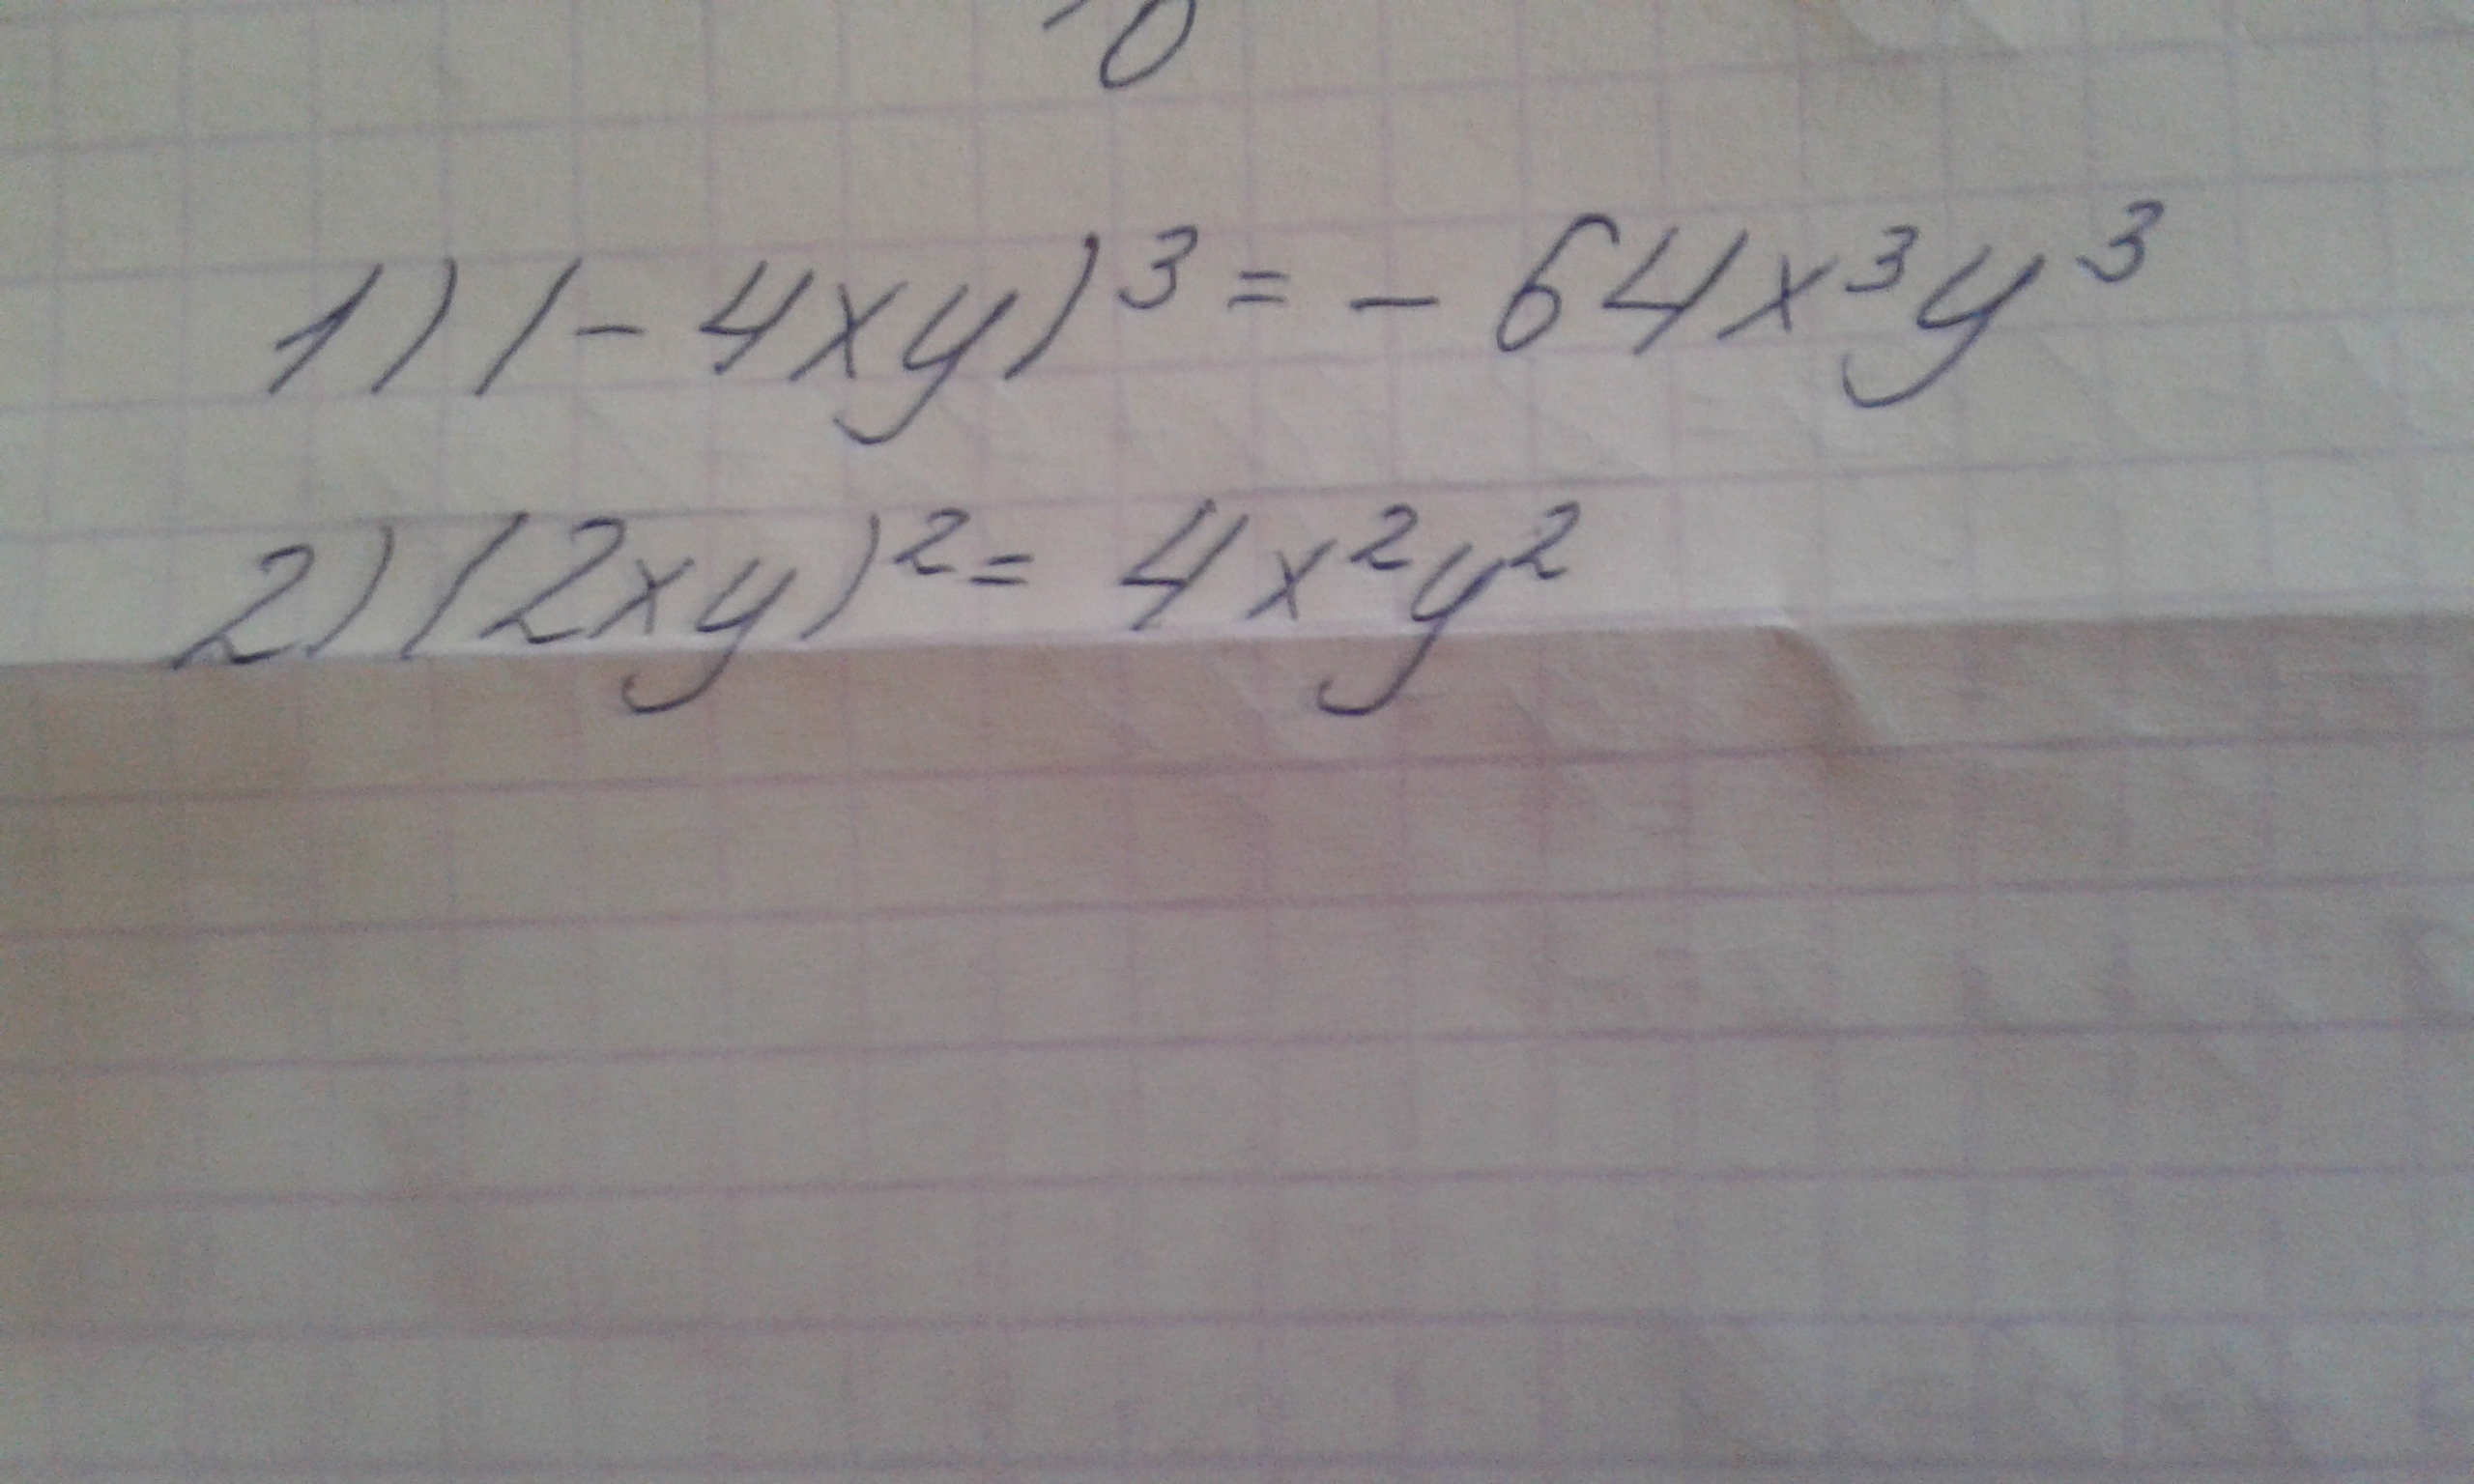 1) (-4xy)³ = - 64x³y³
2) (2xy)² = 4x²y²